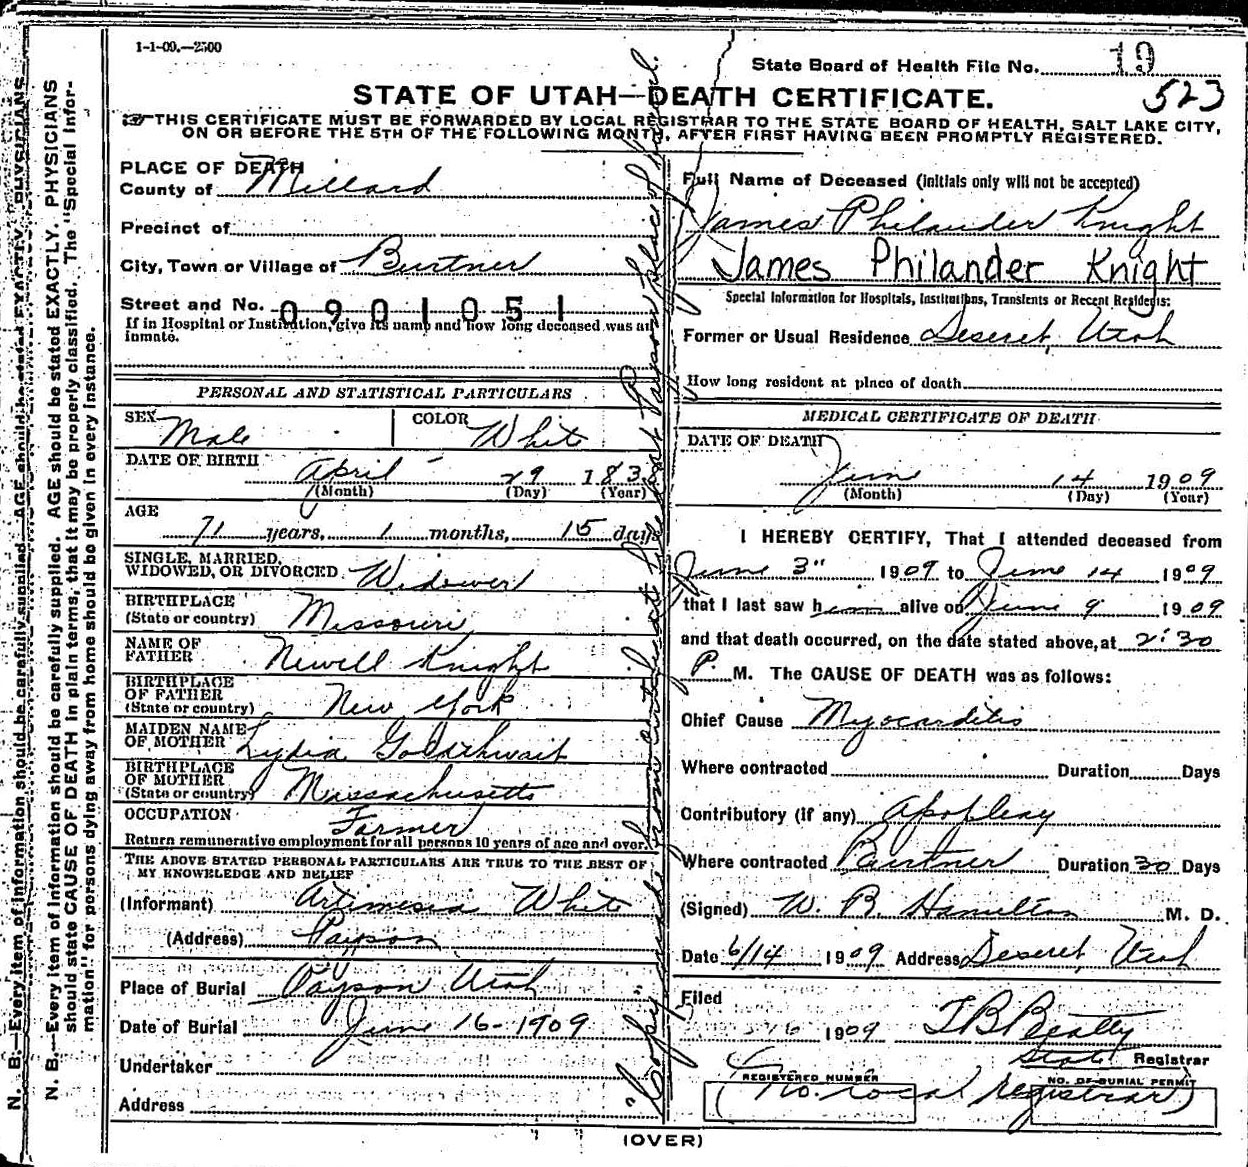 1-1-09.—2500
State Board of Health File No. 19
523
STATE OF UTAH—DEATH CERTIFICATE.
THIS CERTIFICATE MUST BE FORWARDED BY LOCAL REGISTRAR TO THE STATE BOARD OF HEALTH, SALT LAKE CITY,
ON OR BEFORE THE 5TH OF THE FOLLOWING MONTH, AFTER FIRST HAVING BEEN PROMPTLY REGISTERED.
PLACE OF DEATH
County of Millard
Precinct of
City, Town or Village of Burtner
Street and No. 0901051
If in Hospital or Institution, give its name and how long deceased was an
inmate.
PERSONAL AND STATISTICAL PARTICULARS
SEX Male COLOR White
DATE OF BIRTH April 29 183
(Month) (Day) (Year)
AGE 71 years, 1 months, 15 days
SINGLE, MARRIED,
WIDOWED, OR DIVORCED Widower
BIRTHPLACE
(State or country) Missouri
NAME OF
FATHER Newell Knight
BIRTHPLACE
OF FATHER
(State or country) New York
MAIDEN NAME
OF MOTHER Lydia Goldthwait
BIRTHPLACE
OF MOTHER
(State or country) Massachusetts
OCCUPATION Farmer
Return remunerative employment for all persons 10 years of age and over.
THE ABOVE STATED PERSONAL PARTICULARS ARE TRUE TO THE BEST OF
MY KNOWLEDGE AND BELIEF
(Informant) Artimesia White
(Address) Payson
Place of Burial Payson Utah
Date of Burial June 16-1909
Undertaker
Address
Full Name of Deceased (initials only will not be accepted)
James Philander Knight
James Philander Knight
Special Information for Hospitals, Institutions, Transients or Recent Residents:
Former or Usual Residence Deseret, Utah
How long resident at place of death
MEDICAL CERTIFICATE OF DEATH
DATE OF DEATH
June 14 1909
(Month) (Day) (Year)
I HEREBY CERTIFY, That I attended deceased from
June 3" 1909 to June 14 1909
that I last saw him alive on June 9 1909
and that death occurred, on the date stated above, at 2:30
P. M. The CAUSE OF DEATH was as follows:
Chief Cause Myocarditis
Where contracted Duration Days
Contributory (if any) Apoplexy
Where contracted Burtner Duration 30 Days
(Signed) W. R. Hamilton M. D.
Date 6/14 1909 Address Deseret, Utah
Filed
1909 T B Beatty
State Registrar
REGISTERED NUMBER NO. OF BURIAL PERMIT
(No. Local Registrar)
(OVER)
N. B.—Every item of information should be carefully supplied. AGE should be stated EXACTLY. PHYSICIANS
N. B.—Every item of information should be carefully supplied. AGE should be stated EXACTLY. PHYSICIANS
should state CAUSE OF DEATH in plain terms, that it may be properly classified. The "Special Infor-
mation" for persons dying away from home should be given in every instance.